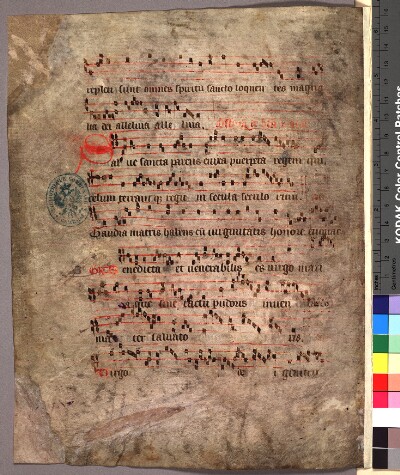 repleti sunt omnes spiritu sancto loquen tes magna
lia dei alleluia alle luia.
Sal ue sancta parens enixa puerpera regem qui
celum terramq; regit in secula seculo rum.
Gaudia matris habens cū uirginitatis honore
enedicta et uenerabilis es uirgo mari
a que sine tactu pudoris inuen
ma ter saluato ris.
Uirgo de i genitrix
KODAK Color Control Patches